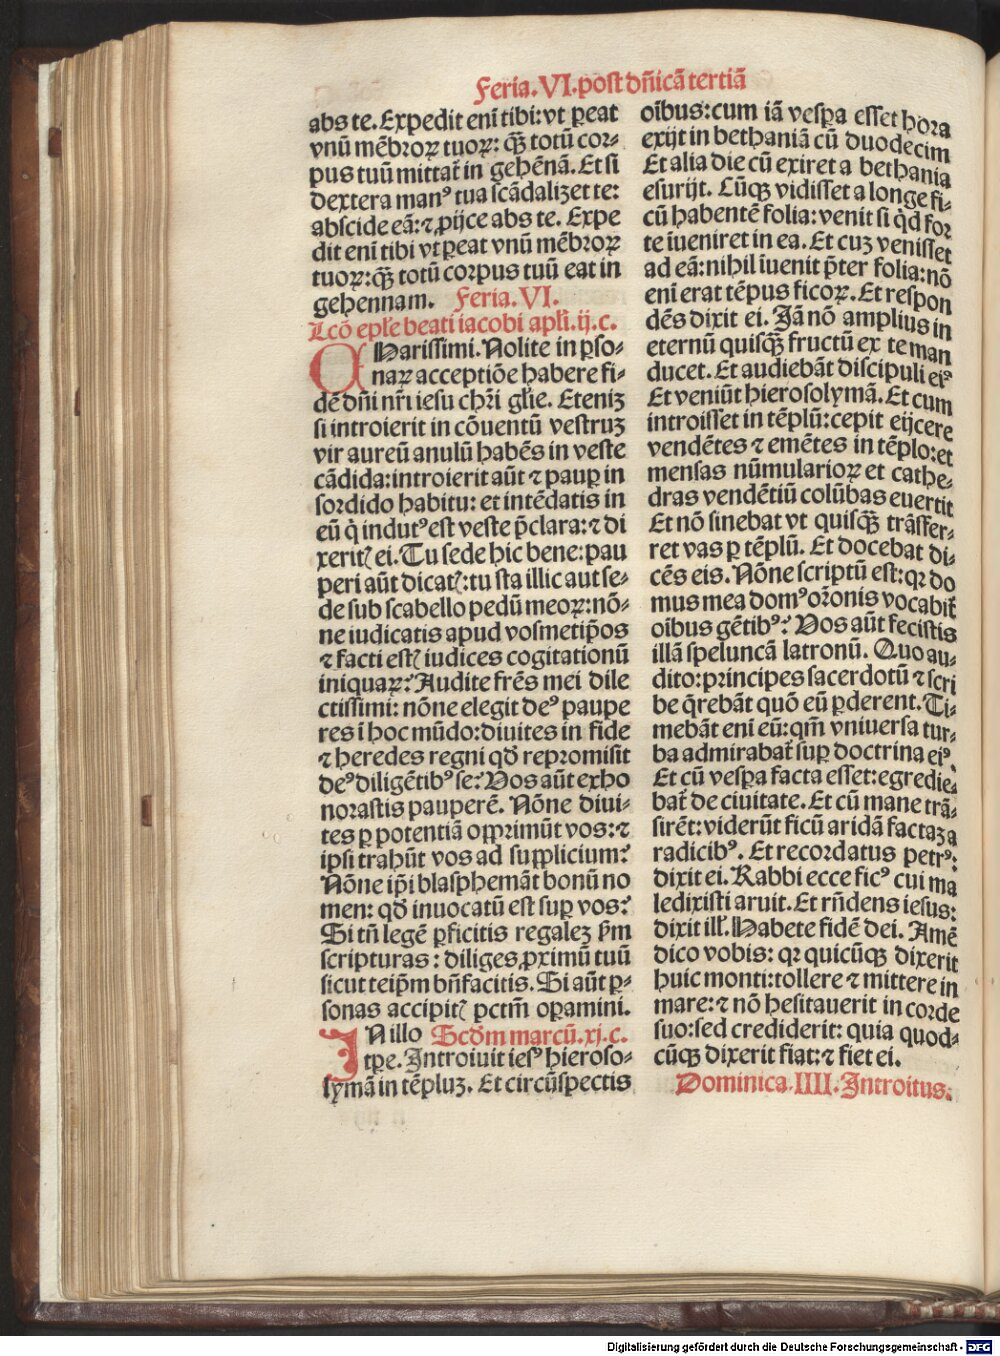 Feria.VI.post dñicã tertiã
abs te. Expedit eni̅ tibi: vt ꝑeat
vnũ mẽbroꝝ tuoꝝ: q̃ꝫ totũ cor-
pus tuũ mittat᷑ in gehẽnã. Et si
dextera manꝰ tua scãdalizet te:
abscide eã: ⁊ ꝓijce abs te. Expe
dit eni̅ tibi vt ꝑeat vnũ mẽbroꝝ
tuoꝝ: q̃ꝫ totũ corpus tuũ eat in
gehennam. Feria.VI.
Lcõ epl̃e beati iacobi apl̃i.ij.c.
CHarissimi. Nolite in ꝑso-
naꝝ acceptiõe habere fi-
dẽ dñi nr̃i iesu chr̃i gl̃ie. Eteniꝫ
si introierit in cõuentũ vestruꝫ
vir aureũ anulũ habẽs in veste
cãdida: introierit aũt ⁊ pauꝑ in
sordido habitu: et intẽdatis in
eũ q̇ indutꝰ est veste p̃clara: ⁊ di
xeritꝭ ei. Tu sede hic bene: pau
peri aũt dicatꝭ: tu sta illic aut se-
de sub scabello pedũ meoꝝ: nõ-
ne iudicatis apud vosmetip̃os
⁊ facti estꝭ iudices cogitationũ
iniquaꝝ? Audite fr̃es mei dile
ctissimi: nõne elegit deꝰ paupe
res ĩ hoc mũdo: diuites in fide
⁊ heredes regni qđ repromisit
deꝰ diligẽtibꝰ se? Vos aũt exho
norastis pauperẽ. Nõne diui-
tes ꝑ potentiã opprimũt vos: ⁊
ipsi trahũt vos ad supplicium?
Nõne ip̃i blasphemãt bonũ no
men: qđ inuocatũ est suꝑ vos?
Si tñ legẽ ꝑficitis regaleꝫ p̃m
scripturas: diliges ꝓximũ tuũ
sicut teip̃m bñfacitis. Si aũt ꝑ-
sonas accipitꝭ pctm̃ oꝑamini.
IN illo Scđm marcũ.xj.c.
tp̃e. Introiuit iesꝰ hieroso-
lymã in tẽpluꝫ. Et circũspectis
oĩbus: cum iã vesꝑa esset hora
exijt in bethaniã cũ duodecim
Et alia die cũ exiret a bethania
esurijt. Cũqꝫ vidisset a longe fi-
cũ habentẽ folia: venit si q̇d for
te ĩueniret in ea. Et cuꝫ venisset
ad eã: nihil ĩuenit p̃ter folia: nõ
eni̅ erat tẽpus ficoꝝ. Et respon
dẽs dixit ei. Jã nõ amplius in
eternũ quisq̃ꝫ fructũ ex te man
ducet. Et audiebãt discipuli eiꝰ
Et veniũt hierosolymã. Et cum
introisset in tẽplũ: cepit eijcere
vendẽtes ⁊ emẽtes in tẽplo: et
mensas nũmularioꝝ et cathe-
dras vendẽtiũ colũbas euertit
Et nõ sinebat vt quisq̃ꝫ trãsfer-
ret vas ꝑ tẽplũ. Et docebat di-
cẽs eis. Nõne scriptũ est: qꝛ do
mus mea domꝰ or̃onis vocabit᷑
oĩbus gẽtibꝰ? Vos aũt fecistis
illã speluncã latronũ. Quo au-
dito: principes sacerdotũ ⁊ scri
be q̃rebãt quõ eũ ꝑderent. Ti-
mebãt eni̅ eũ: qm̃ vniuersa tur-
ba admirabat᷑ suꝑ doctrina eiꝰ.
Et cũ vesꝑa facta esset: egredie-
bat᷑ de ciuitate. Et cũ mane trã-
sirẽt: viderũt ficũ aridã factaꝫ a
radicibꝰ. Et recordatus petrꝰ:
dixit ei. Rabbi ecce ficꝰ cui ma
ledixisti aruit. Et rñdens iesus:
dixit ill̃. Habete fidẽ dei. Amẽ
dico vobis: qꝛ quicũqꝫ dixerit
huic monti: tollere ⁊ mittere in
mare: ⁊ nõ hesitauerit in corde
suo: sed crediderit: quia quod-
cũqꝫ dixerit fiat: ⁊ fiet ei.
Dominica.IIII.Introitus.
Digitalisierung gefördert durch die Deutsche Forschungsgemeinschaft - DFG